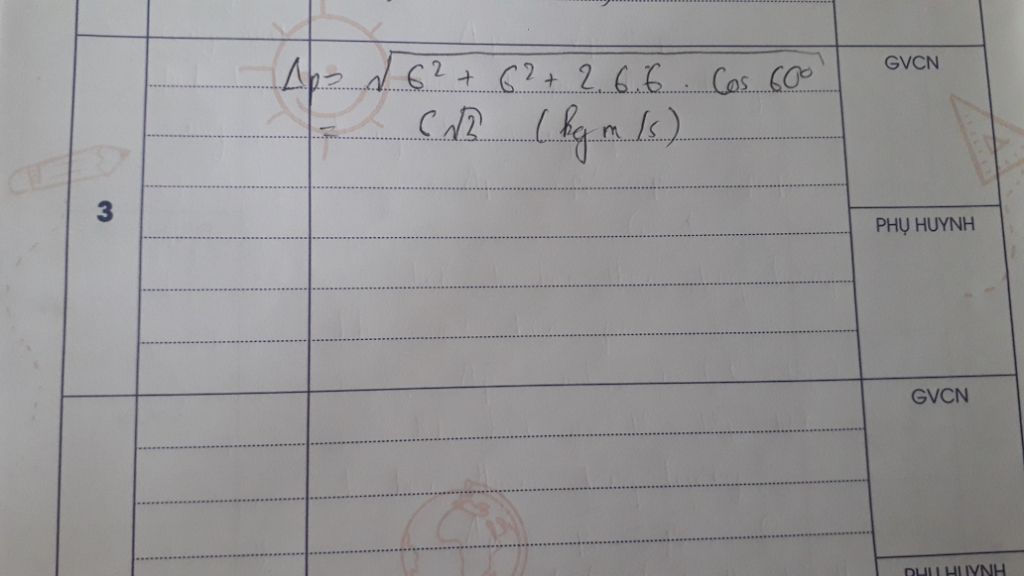 GVCN
Δp = √(6² + 6² + 2.6.6 . Cos 60°)
= 6√3 (kg m/s)
3
PHỤ HUYNH
GVCN
PHỤ HUYNH